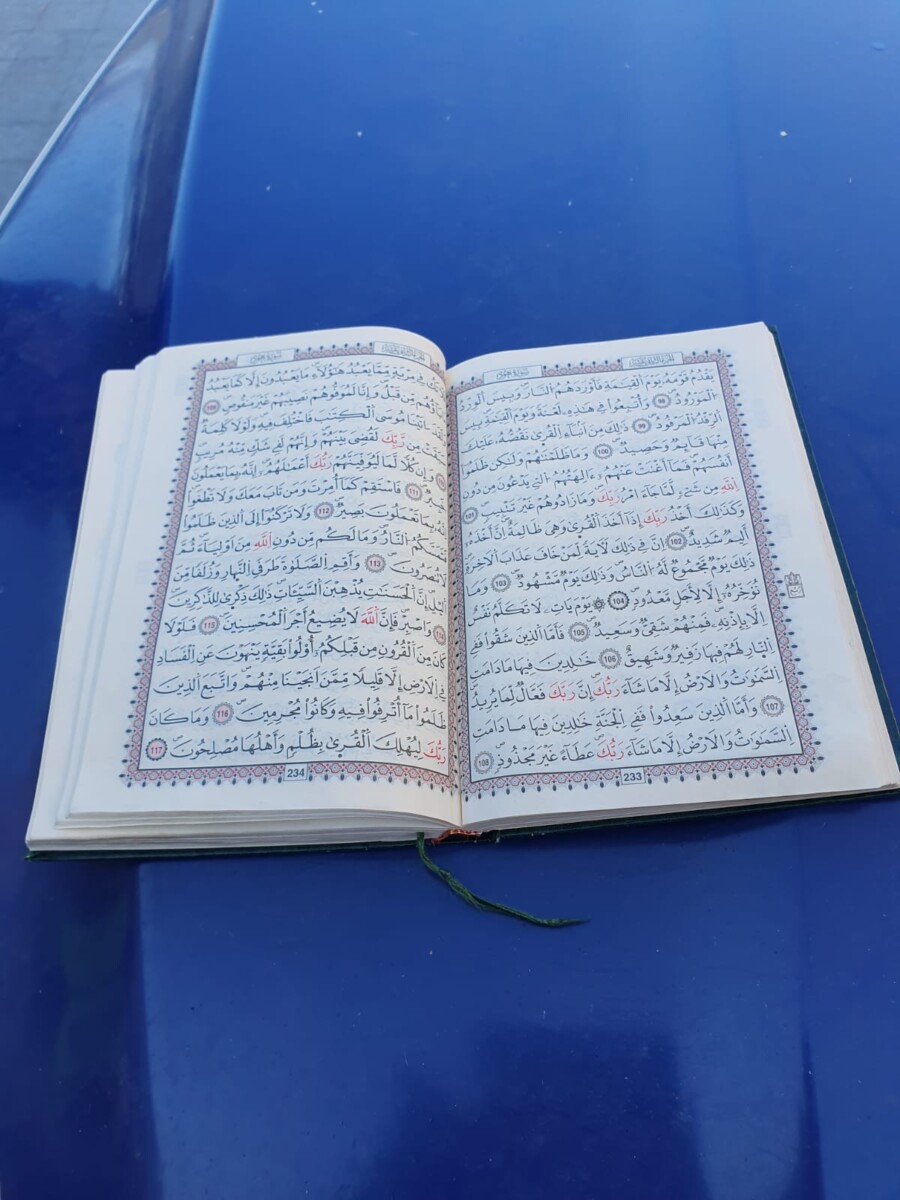 الجزء الثاني عشر
سورة هود
يَقْدُمُ قَوْمَهُۥ يَوْمَ اَ۬لْقِيَٰمَةِ فَأَوْرَدَهُمُ اُ۬لنَّارَ وَبِيسَ اَ۬لْوِرْدُ
اُ۬لْمَوْرُودُ 98 وَأُتْبِعُوا فِي هَٰذِهِۦ لَعْنَةً وَيَوْمَ اَ۬لْقِيَٰمَةِ بِيسَ
اَ۬لرِّفْدُ اُ۬لْمَرْفُودُ 99 ذَٰلِكَ مِنَ اَنۢبَآءِ اِ۬لْقُرَىٰ نَقُصُّهُۥ عَلَيْكَ
مِنْهَا قَآئِمٌ وَحَصِيدٌ 100 وَمَا ظَلَمْنَٰهُمْ وَلَٰكِن ظَلَمُوا
أَنفُسَهُمْ فَمَا أَغْنَتْ عَنْهُمُۥٓ ءَالِهَتُهُمُ اُ۬لتِي يَدْعُونَ مِن دُونِ
اِ۬للَّهِ مِن شَيْءٍ لَّمَّا جَآءَ امْرُ رَبِّكَ وَمَا زَادُوهُمْ غَيْرَ تَتْبِيبٍ 101
وَكَذَٰلِكَ أَخْذُ رَبِّكَ إِذَآ أَخَذَ اَ۬لْقُرَىٰ وَهِيَ ظَٰلِمَةٌ اِنَّ أَخْذَهُۥٓ
أَلِيمٌ شَدِيدٌ 102 اِنَّ فِي ذَٰلِكَ لَأٓيَةً لِّمَنْ خَافَ عَذَابَ اَ۬لَاخِرَةِ
ذَٰلِكَ يَوْمٌ مَّجْمُوعٌ لَّهُ اُ۬لنَّاسُ وَذَٰلِكَ يَوْمٌ مَّشْهُودٌ 103 وَمَا
نُؤَخِّرُهُۥٓ إِلَّا لِأَجَلٍ مَّعْدُودٍ 104 يَوْمَ يَاتِۦ لَا تَكَلَّمُ نَفْسٌ
اِلَّا بِإِذْنِهِۦ فَمِنْهُمْ شَقِيٌّ وَسَعِيدٌ 105 فَأَمَّا اَ۬لذِينَ شَقُوا فَفِي
اِ۬لنَّارِ لَهُمْ فِيهَا زَفِيرٌ وَشَهِيقٌ 106 خَٰلِدِينَ فِيهَا مَا دَامَتِ
اِ۬لسَّمَٰوَٰتُ وَالَارْضُ إِلَّا مَا شَآءَ رَبُّكَ إِنَّ رَبَّكَ فَعَّالٌ لِّمَا يُرِيدُ
107 وَأَمَّا اَ۬لذِينَ سَعِدُوا فَفِي اِ۬لْجَنَّةِ خَٰلِدِينَ فِيهَا مَا دَامَتِ
اِ۬لسَّمَٰوَٰتُ وَالَارْضُ إِلَّا مَا شَآءَ رَبُّكَ عَطَآءً غَيْرَ مَجْذُوذٍ 108
233
سورة هود
فِي مِرْيَةٍ مِّمَّا يَعْبُدُ هَٰٓؤُلَآءِ مَا يَعْبُدُونَ إِلَّا كَمَا يَعْبُدُ
ءَابَآؤُهُم مِّن قَبْلُ وَإِنَّا لَمُوَفُّوهُمْ نَصِيبَهُمْ غَيْرَ مَنقُوصٍ 109
وَلَقَدَ ـاتَيْنَا مُوسَى اَ۬لْكِتَٰبَ فَاخْتُلِفَ فِيهِ وَلَوْلَا كَلِمَةٌ
سَبَقَتْ مِن رَّبِّكَ لَقُضِيَ بَيْنَهُمْ وَإِنَّهُمْ لَفِي شَكٍّ مِّنْهُ مُرِيبٍ
وَإِن كُلًّا لَمَا لَيُوَفِّيَنَّهُمْ رَبُّكَ أَعْمَٰلَهُمُۥٓ إِنَّهُۥ بِمَا يَعْمَلُونَ
خَبِيرٌ 111 فَاسْتَقِمْ كَمَآ أُمِرْتَ وَمَن تَابَ مَعَكَ وَلَا تَطْغَوِا
اِنَّهُۥ بِمَا تَعْمَلُونَ بَصِيرٌ 112 وَلَا تَرْكَنُوٓا إِلَى اَ۬لذِينَ ظَلَمُوا
فَتَمَسَّكُمُ اُ۬لنَّارُ وَمَا لَكُم مِّن دُونِ اِ۬للَّهِ مِنَ اَوْلِيَآءَ ثُمَّ
لَا تُنصَرُونَ 113 وَأَقِمِ اِ۬لصَّلَوٰةَ طَرَفَيِ اِ۬لنَّهَارِ وَزُلَفًا مِّنَ
اَ۬ليْلِ إِنَّ اَ۬لْحَسَنَٰتِ يُذْهِبْنَ اَ۬لسَّيِّـَٔاتِ ذَٰلِكَ ذِكْرَىٰ لِلذَّٰكِرِينَ
114 وَاصْبِرْ فَإِنَّ اَ۬للَّهَ لَا يُضِيعُ أَجْرَ اَ۬لْمُحْسِنِينَ 115 فَلَوْلَا
كَانَ مِنَ اَ۬لْقُرُونِ مِن قَبْلِكُمُۥٓ أُوْلُوا بَقِيَّةٍ يَنْهَوْنَ عَنِ اِ۬لْفَسَادِ
فِي اِ۬لَارْضِ إِلَّا قَلِيلًا مِّمَّنَ اَنجَيْنَا مِنْهُمْ وَاتَّبَعَ اَ۬لذِينَ
ظَلَمُوا مَآ أُتْرِفُوا فِيهِ وَكَانُوا مُجْرِمِينَ 116 وَمَا كَانَ
رَبُّكَ لِيُهْلِكَ اَ۬لْقُرَىٰ بِظُلْمٍ وَأَهْلُهَا مُصْلِحُونَ 117
234